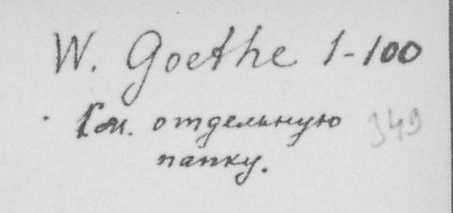 W. Goethe 1-100
См. отдельную 349
папку.